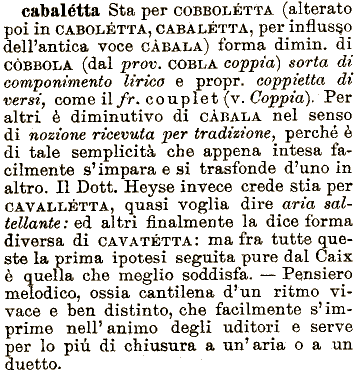 cabalétta Sta per COBBOLÉTTA (alterato
poi in CABOLÉTTA, CABALÉTTA, per influsso
dell'antica voce CÀBALA) forma dimin. di
CÒBBOLA (dal prov. COBLA coppia) sorta di
componimento lirico e propr. coppietta di
versi, come il fr. couplet (v. Coppia). Per
altri è diminutivo di CÀBALA nel senso
di nozione ricevuta per tradizione, perché è
di tale semplicità che appena intesa fa-
cilmente s'impara e si trasfonde d'uno in
altro. Il Dott. Heyse invece crede stia per
CAVALLÉTTA, quasi voglia dire aria sal-
tellante: ed altri finalmente la dice forma
diversa di CAVATÉTTA: ma fra tutte que-
ste la prima ipotesi seguita pure dal Caix
è quella che meglio soddisfa. — Pensiero
melodico, ossia cantilena d'un ritmo vi-
vace e ben distinto, che facilmente s'im-
prime nell'animo degli uditori e serve
per lo piú di chiusura a un'aria o a un
duetto.